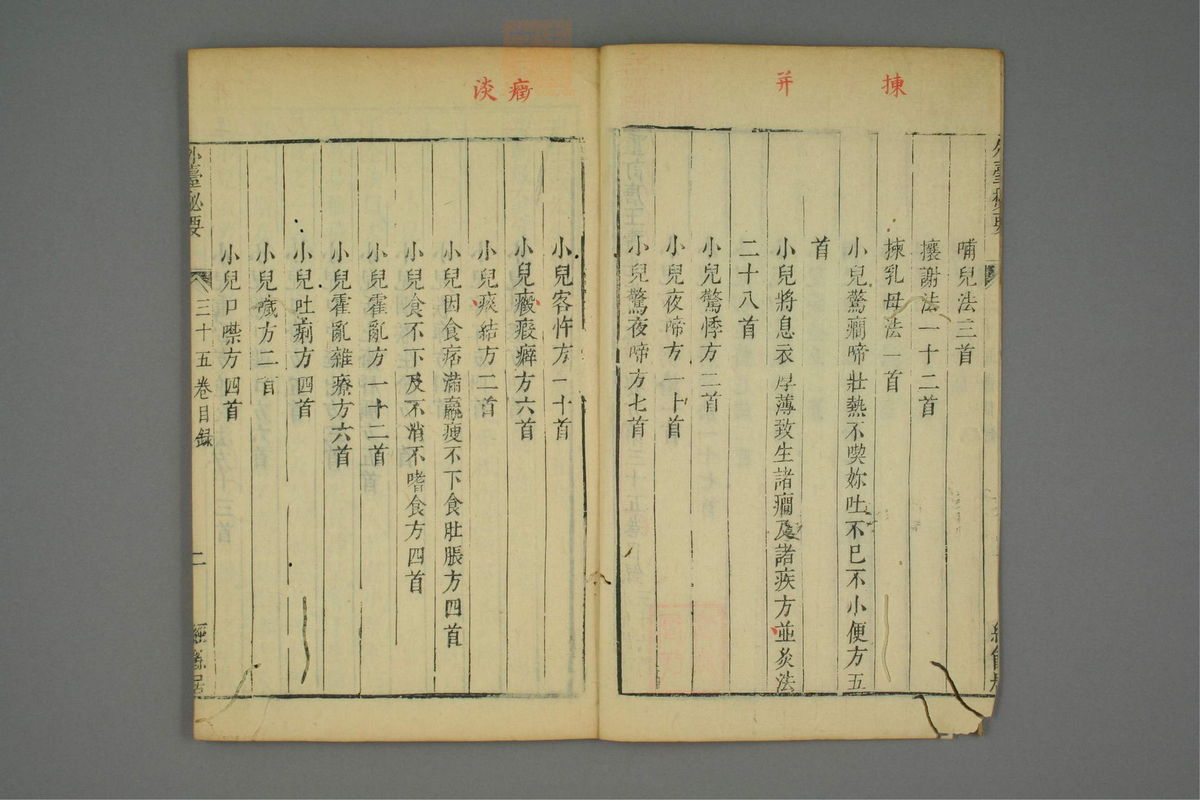 揀
并
哺兒法三首
攘謝法一十二首
揀乳母法一首
小兒驚癇啼壯熱不喫妳吐不已不小便方五
首
小兒將息衣厚薄致生諸癇及諸疾方並灸法
二十八首
小兒驚悸方二首
小兒夜啼方一十首
小兒驚夜啼方七首
癥
淡
小兒客忤方一十首
小兒癥瘕癖方六首
小兒痰結方二首
小兒因食痞滿羸瘦不下食肚脹方四首
小兒食不下及不消不嗜食方四首
小兒霍亂方一十二首
小兒霍亂雜療方六首
小兒吐痢方四首
小兒癥方二首
小兒口噤方四首
外臺秘要
三十五卷目録
二
經餘居